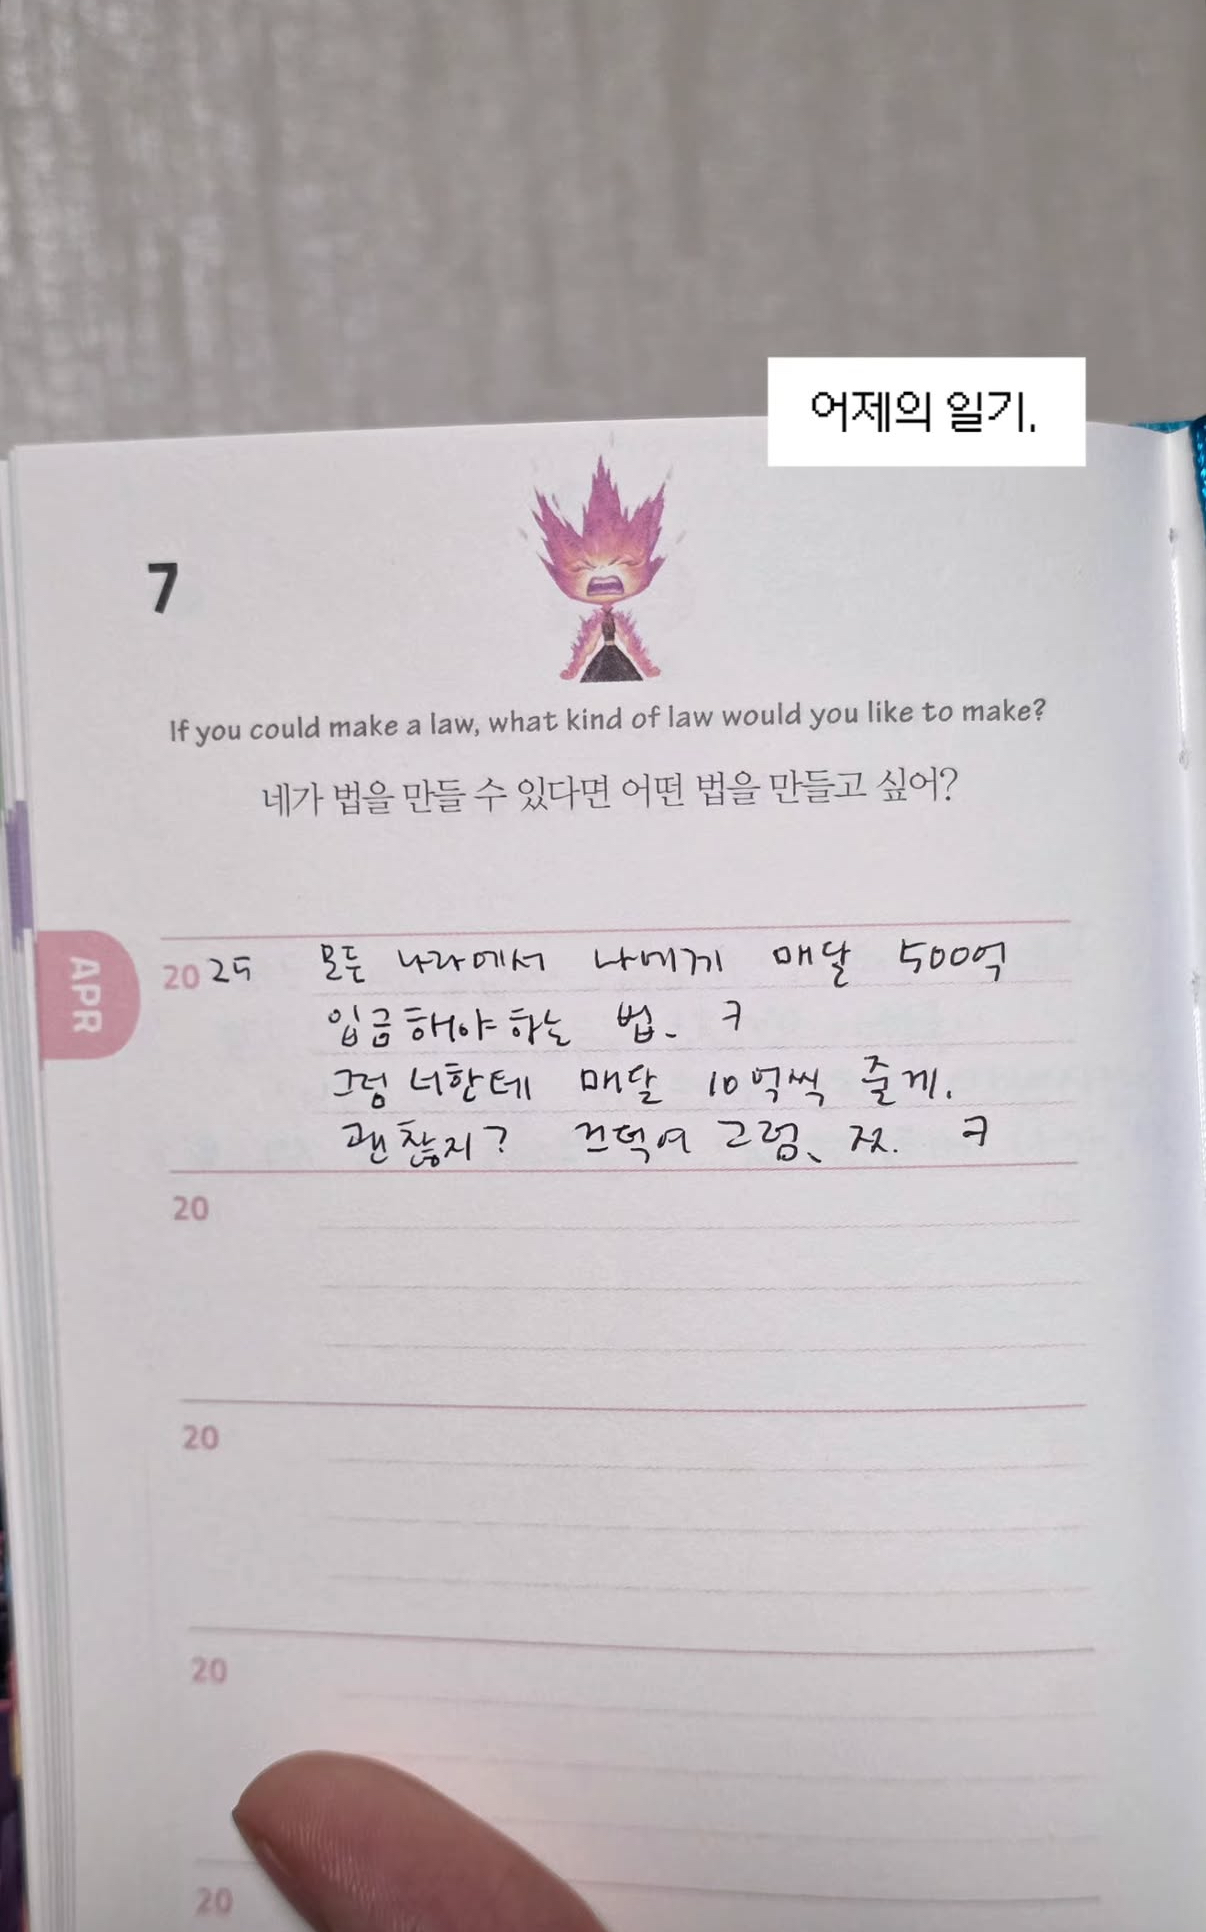 어제의 일기.
7
If you could make a law, what kind of law would you like to make?
네가 법을 만들 수 있다면 어떤 법을 만들고 싶어?
APR
2025 모든 나라에서 나에게 매달 500억
입금해야하는 법. ㅋ
그럼 너한테 매달 10억씩 줄게.
괜찮지? 끄덕여 그럼, 자.. ㅋ
20
20
20
20